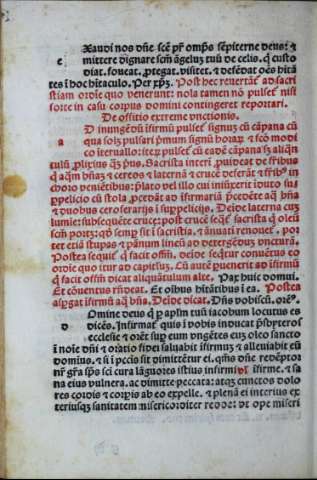 Xaudi nos dñe scẽ p̃r omp̃s sẽpiterne deus: ⁊
e mittere dignare scm̃ ãgelum tuũ de celis. q̃ custo
diat. foueat. ꝓtegat. visitet. ⁊ defẽdat oẽs hĩtã
tes ĩ hoc hĩtaculo. Per xp̃m. Post hec reuertãt̃ ad sacri
stiam ordĩe quo venerunt: nola tamen nõ pulset̃ nisi
forte in casu corpus domini contingeret reportari.
De officio extreme vnctionis.
D inungẽdũ ĩfirmũ pulset̃ signuz cũ cãpana cũ
qua soꝫ pulsari p̃mum signũ horaꝝ ⁊ scõ modi
co ĩteruallo: iteꝝ pulset̃ cũ eadẽ cãpana
culũ. Sacrista interĩ
cereos ⁊ laternã ⁊ crucẽ deferãt
choro veniẽtibus: p̃lato vel illo cui iniũxerit ĩduto su
ꝑpelicio cũ stola, p̃cedãt ad ĩfirmariã
⁊ duobus ceroferarijs ĩ suꝑpelicijs. Deide laterna cũ
lumie: subsequẽte cruce: post crucẽ seqt̃ sacrista q̃ oleũ
scm̃ portz: q̃ semꝑ sit ĩ sacristia. ⁊ ãnuati renouet̃. por
tet etiã stupas ⁊ pãnum lineũ ad detergẽduz vncturã.
Postea sequit̃ q̃ facit offm̃. deide seq̃tur conuẽtus eo
ordĩe quo itur ad capitl̃uz. Cũ autẽ puenerit ad ĩfirmũ
q̃ facit offm̃ dicat aliquãtulum alte. Pax huic domui.
Et cõuentus r̃ndeat. Et oĩbus hĩtãtibus ĩ ea. Postea
aspgat ĩfirmũ aq̃ bñã. Deide dicat. Dñs vobiscũ. orẽ.
Omine deus q̃ ꝑ apl̃m tuũ iacobum locutus es
d dicẽs. Infirmat̃ quis ĩ vobis inducat p̃sbyteros
ecclesie ⁊ orẽt suꝑ eum vngẽtes euz oleo sancto
ĩ noĩe dñi ⁊ oratio fidei saluabit ĩfirmuz ⁊ alleuiabit eũ
dominus. ⁊ si ĩ pctĩs sit dimittẽtur ei. q̃sm̃s dñe redẽptor
nr̃ gr̃a sp̃s sci cura lãguores istius infirmi vl̃ ĩfirme. ⁊ sa
na eius vulnera. ac dimitte peccata: atqꝫ cunctos dolo
res cordis ⁊ corꝑis ab eo expelle. ⁊ plenã ei interius ex
teriusqꝫ sanitatem misericorditer redde: vt ope miseri